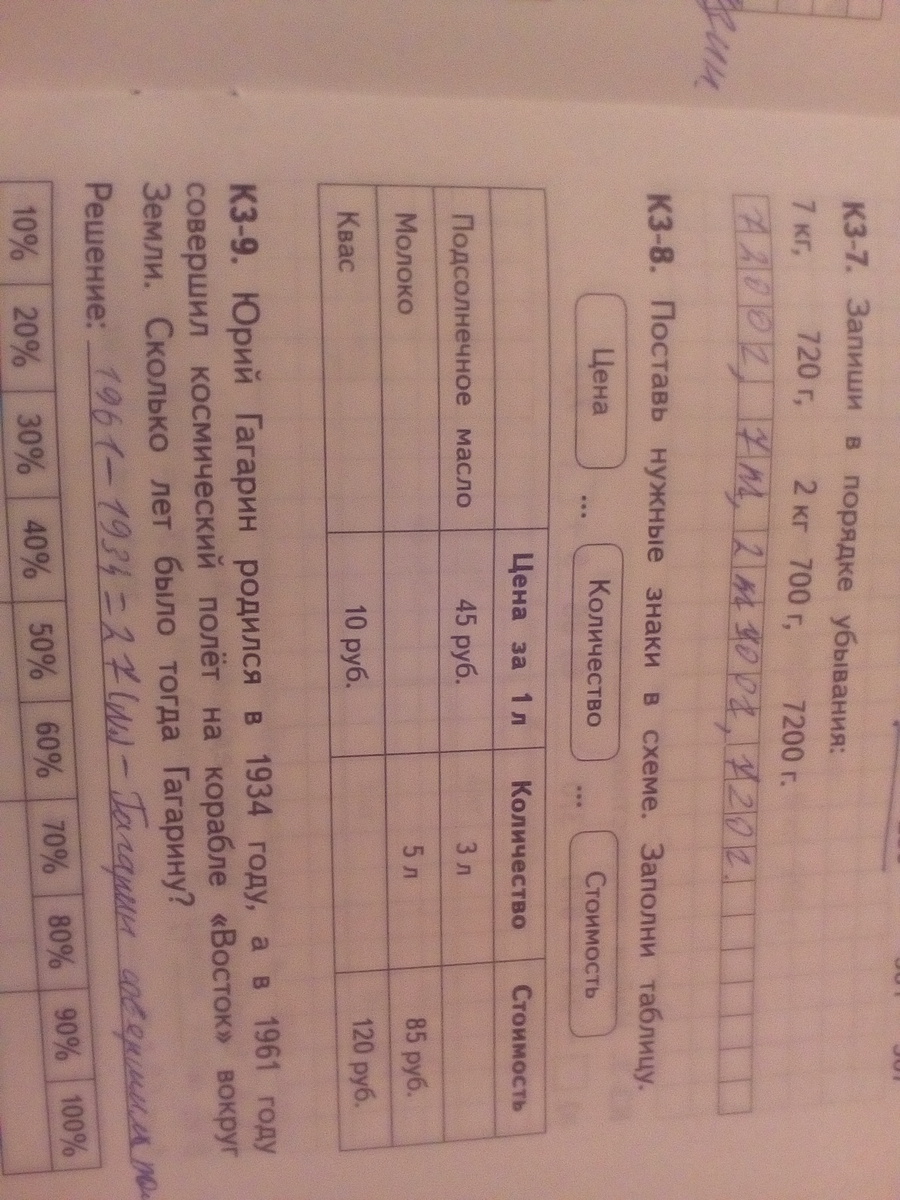 КЗ-7. Запиши в порядке убывания:
7 кг, 720 г, 2 кг 700 г, 7200 г.
7200г, 7кг, 2кг 700г, 720г.
КЗ-8. Поставь нужные знаки в схеме. Заполни таблицу.
Цена ... Количество ... Стоимость
Цена за 1 л Количество Стоимость
Подсолнечное масло 45 руб. 3 л
Молоко 5 л 85 руб.
Квас 10 руб. 120 руб.
КЗ-9. Юрий Гагарин родился в 1934 году, а в 1961 году
совершил космический полёт на корабле «Восток» вокруг
Земли. Сколько лет было тогда Гагарину?
Решение: 1961-1934=27 - Гагарин совершил
10% 20% 30% 40% 50% 60% 70% 80% 90% 100%